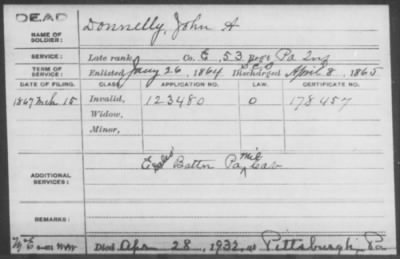 DEAD
NAME OF SOLDIER: Donnelly, John A
SERVICE: Late rank Co. E, 53 Reg't Pa Inf
TERM OF SERVICE: Enlisted Jany 26, 1864 Discharged April 8, 1865
DATE OF FILING. CLASS. APPLICATION NO. LAW. CERTIFICATE NO.
1867 Mch 15 Invalid, 123480 O 178457
Widow,
Minor,
ADDITIONAL SERVICES: Battn Pa Mil Cav
REMARKS:
Died Apr 28, 1932, at Pittsburgh, Pa